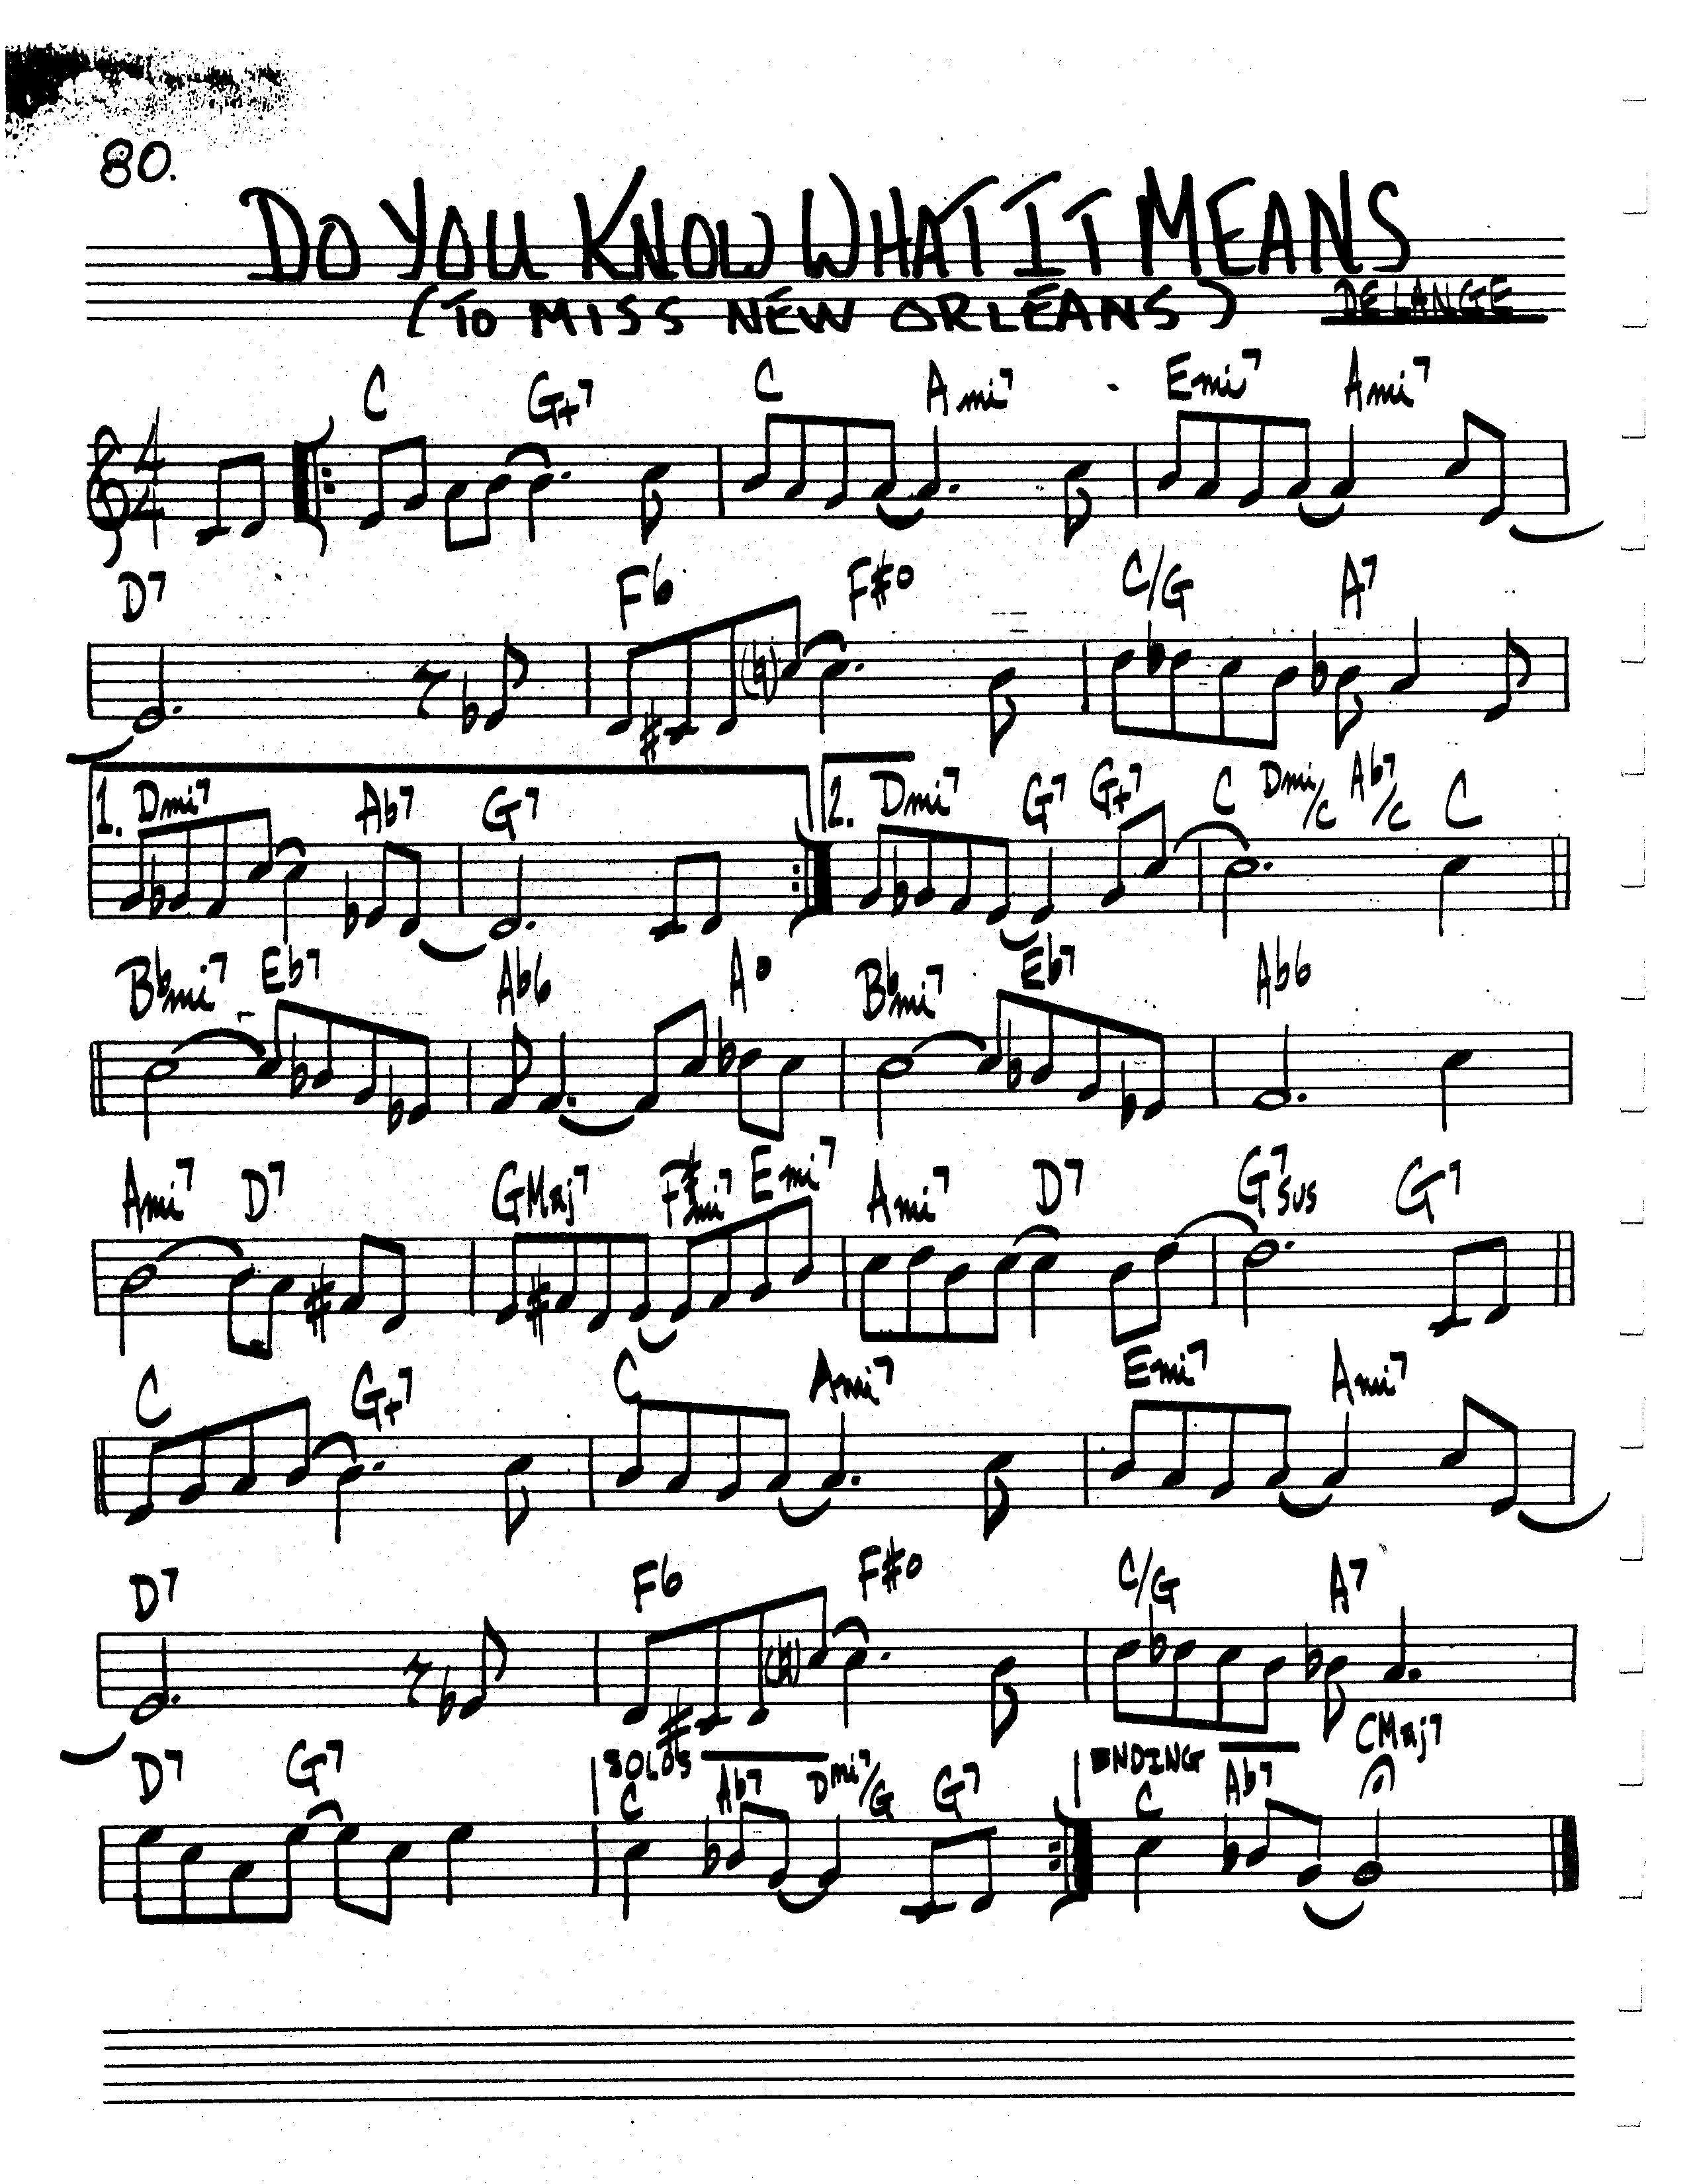 80.
DO YOU KNOW WHAT IT MEANS
(TO MISS NEW ORLEANS) DELANGE
C G+7 C Ami7 Emi7 Ami7
4
4
D7 F6 F#o C/G A7
1. Dmi7 Ab7 G7 2. Dmi7 G7 G+7 C Dmi/C Ab7/C C
Bbmi7 Eb7 Ab6 Ao Bbmi7 Eb7 Ab6
Ami7 D7 GMaj7 F#mi7 Emi7 Ami7 D7 G7sus G7
C G+7 C Ami7 Emi7 Ami7
D7 F6 F#o C/G A7
D7 G7 SOLOS C Ab7 Dmi7/G G7 ENDING C Ab7 CMaj7